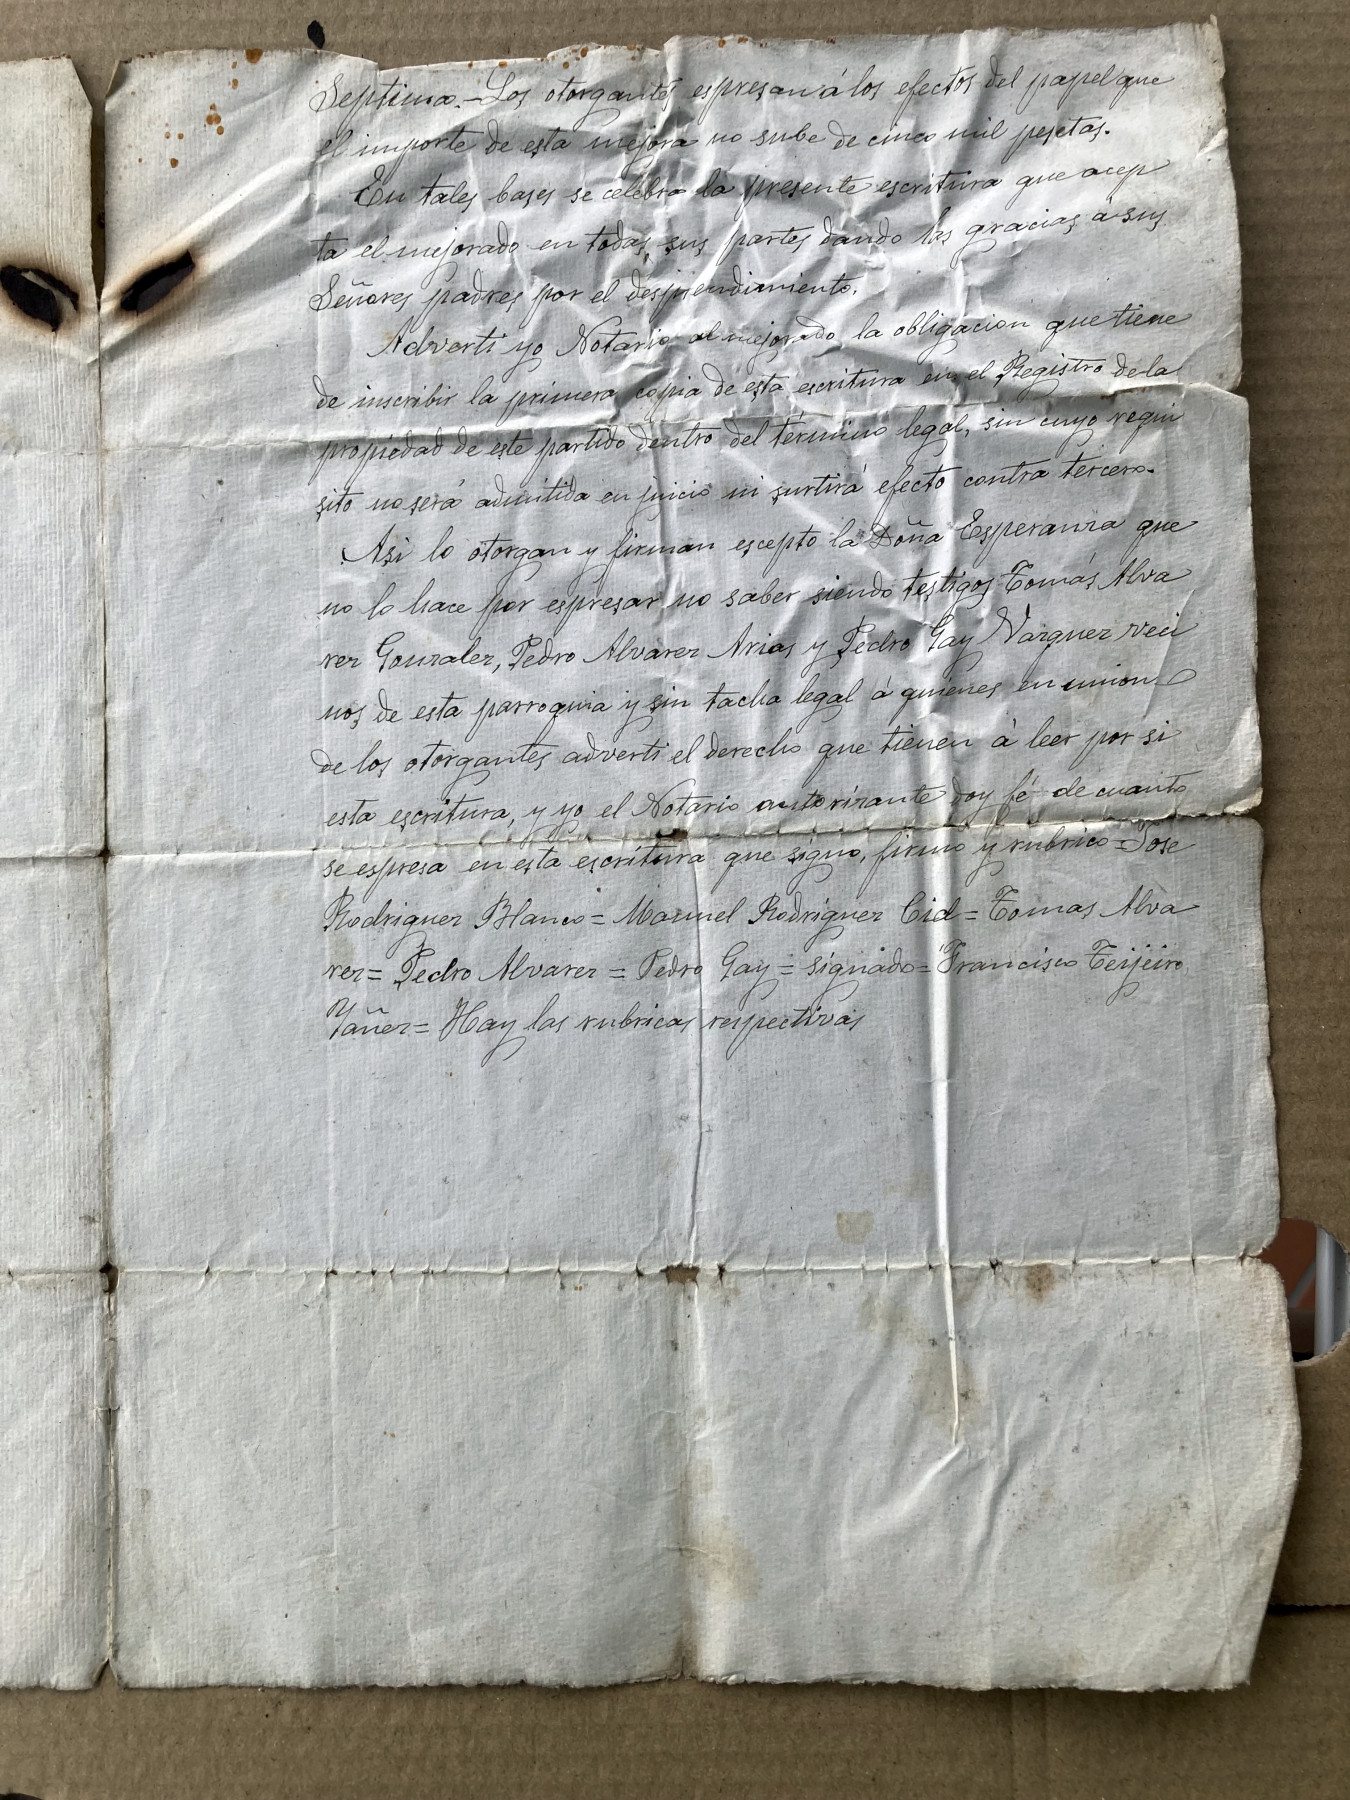 Septima.- Los otorgantes espresan á los efectos del papel que
el importe de esta mejora no sube de cinco mil pesetas.
En tales bases se celebra la presente escritura que acep
ta el mejorado en todas sus partes dando las gracias á sus
Señores padres por el desprendimiento.
Adverti yo Notario al mejorado la obligacion que tiene
de inscribir la primera copia de esta escritura en el Registro de la
propiedad de este partido dentro del término legal, sin cuyo requi
sito no será admitida en juicio ni surtirá efecto contra tercero.
Asi lo otorgan y firman escepto la Doña Esperanza que
no lo hace por espresar no saber siendo testigos Tomás Alva
rez Gonzalez, Pedro Alvarez Arias y Pedro Gay Vazquez veci
nos de esta parroquia y sin tacha legal á quienes en union
de los otorgantes adverti el derecho que tienen á leer por si
esta escritura, y yo el Notario autorizante doy fé de cuanto
se espresa en esta escritura que signo, firmo y rubrico=Jose
Rodriguez Blanco= Manuel Rodriguez Cid= Tomas Alva
rez= Pedro Alvarez = Pedro Gay = signado= Francisco Teijeiro
Yañez= Hay las rubricas respectivas